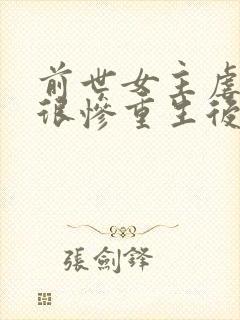 前世女主虐
很慘重生後
張劍鋒